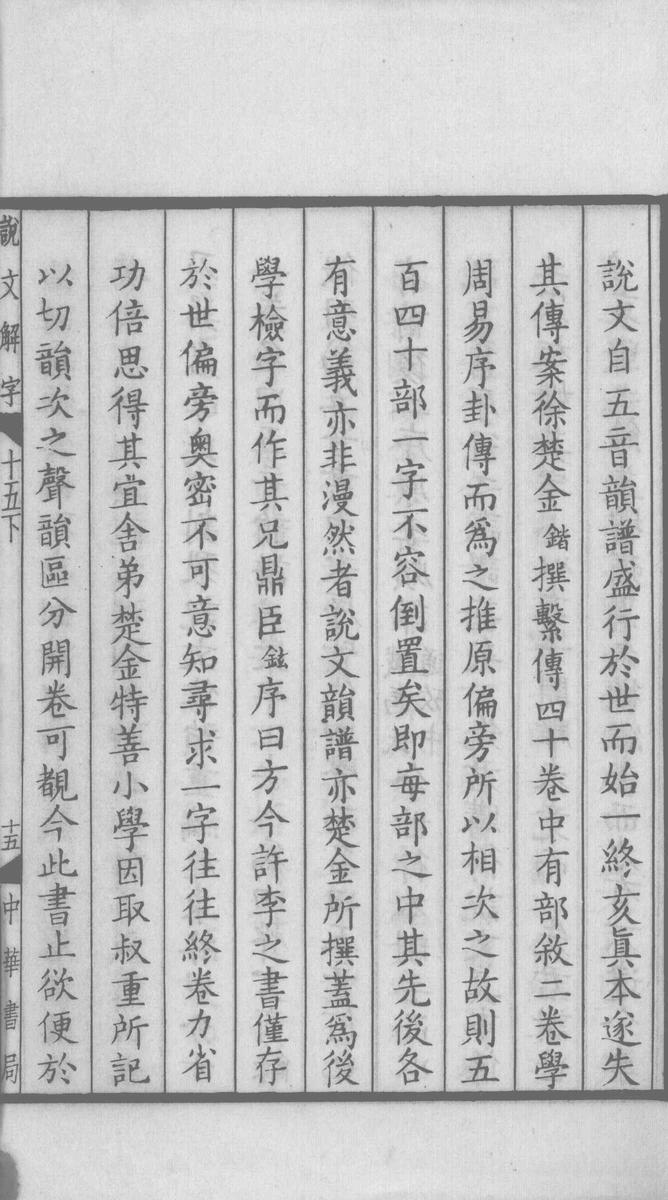 說文自五音韻譜盛行於世而始一終亥眞本遂失
其傳案徐楚金鍇撰繫傳四十卷中有部敘二卷學
周易序卦傳而爲之推原偏旁所以相次之故則五
百四十部一字不容倒置矣即每部之中其先後各
有意義亦非漫然者說文韻譜亦楚金所撰蓋爲後
學檢字而作其兄鼎臣鉉序曰方今許李之書僅存
於世偏旁奧密不可意知尋求一字往往終卷力省
功倍思得其宜舍弟楚金特善小學因取叔重所記
以切韻次之聲韻區分開卷可覩今此書止欲便於
說文解字 十五下 十五 中華書局